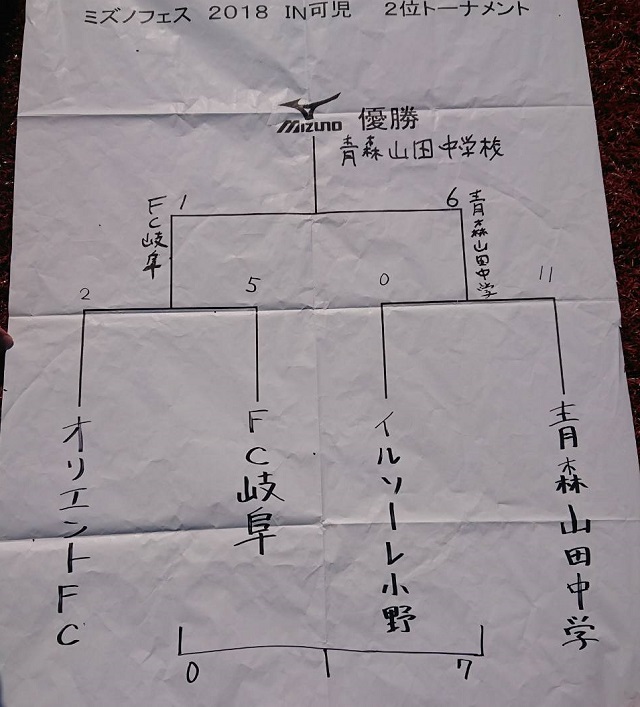 ミズノフェス 2018 IN可児 2位トーナメント
MIZUNO 優勝
青森山田中学校
FC岐阜
1
6
青森山田中学
2
5
0
11
オリエントFC
FC岐阜
イルソーレ小野
青森山田中学
0
7